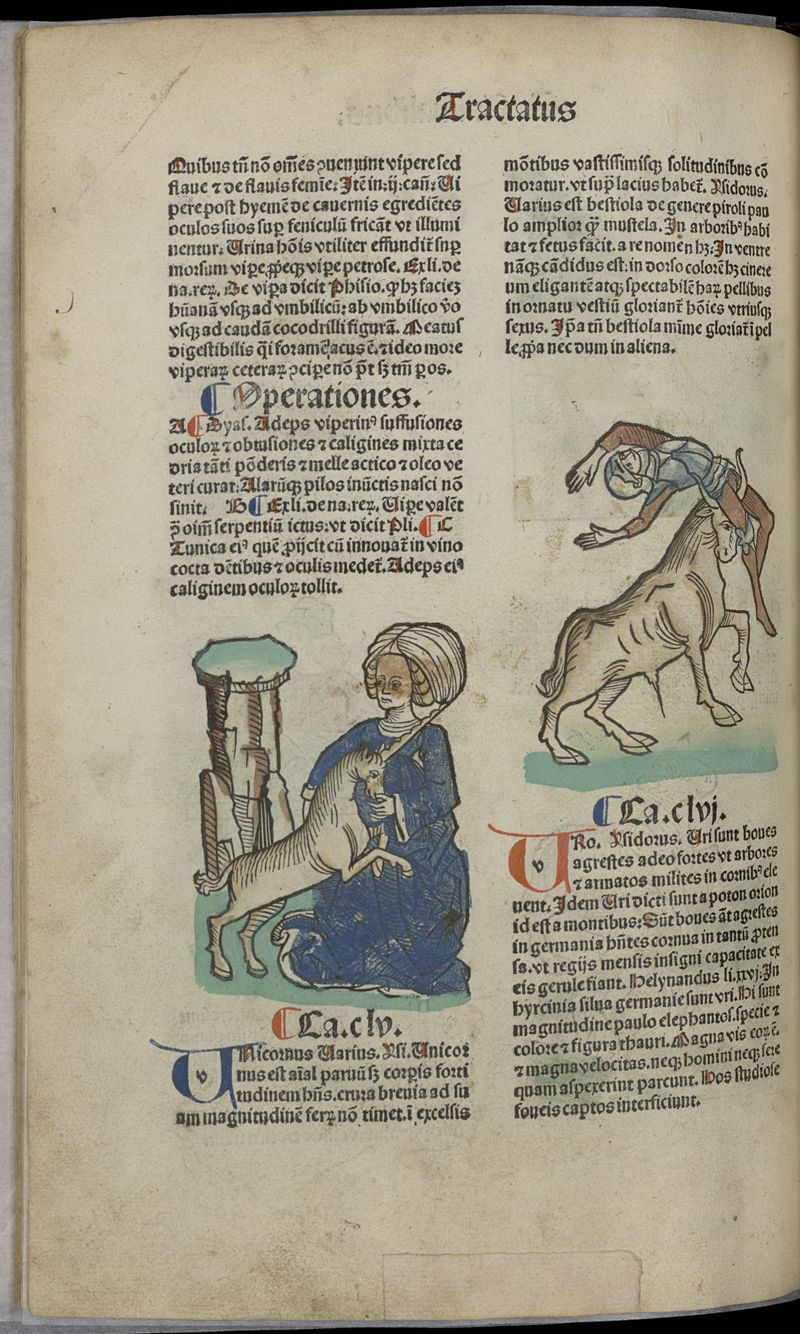 Tractatus
Quibus tñ nõ om̃es ꝯueniunt vipere sed
flaue ⁊ de flauis femĩe. Itẽ in .ij. cañ. Ui
pere post hyemẽ de cauernis egrediẽtes
oculos suos sup̱ feniculũ fricãt vt illumi
nentur. Urina hoĩs vtiliter effundit̃ sup̱
morsum vip̱e, p̱p̱eqꝫ vip̱e petrose. Ex li. de
na. reꝝ. De vip̱a dicit Phisio. ꝙ hꝫ facieꝫ
hũanã vsqꝫ ad vmbilicũ: ab vmbilico ṽo
vsqꝫ ad caudã cocodrilli figurã. Meatus
digestibilis q̃i foramẽ acus ẽ. ⁊ ideo more
viperaꝝ ceteraꝝ ꝯcip̱e nõ p̃t sꝫ tm̃ p̱ os.
¶ Operationes.
A ¶ Dyas. Adeps viperinꝰ suffusiones
oculoꝝ ⁊ obtusiones ⁊ caligines mixta ce
dria tãti põderis ⁊ melle actico ⁊ oleo ve
teri curat. Alarũqꝫ pilos inũctis nasci nõ
sinit. B ¶ Ex li. de na. reꝝ. Uip̱e valẽt
ꝓ oim̃ serpentiũ ictus. vt dicit Pli. ¶ C
Tunica eiꝰ quẽ ꝓijcit cũ innouat̃ in vino
cocta dẽtibus ⁊ oculis medet̃. Adeps eiꝰ
caliginem oculoꝝ tollit.
¶ Ca. clv.
UNicornus Uarius. Ysi. Unicor
nus est aĩal paruũ sꝫ corp̱is forti
tudinem hñs. crura breuia ad su
am magnitudinẽ feraꝝ nõ timet. ĩ excelsis
mõtibus vastissimisqꝫ solitudinibus cõ
moratur. vt sup̱ lacius habet̃. Ysidorus.
Uarius est bestiola de genere piroli pau
lo amplior q̃ꝫ mustela. In arboribꝰ habi
tat ⁊ fetus facit. a re nomen hꝫ. In ventre
nãqꝫ cãdidus est. in dorso colorẽ hꝫ cinere
um eligantẽ atqꝫ spectabilẽ haꝝ pellibus
in ornatu vestiũ gloriant̃ hoĩes vtriusqꝫ
sexus. Ip̃a tñ bestiola mĩme gloriat̃ ĩ pel
le ꝓp̱a nec dum in aliena.
¶ Ca. clvj.
URo. Ysidorus. Uri sunt boues
agrestes adeo fortes vt arbores
⁊ armatos milites in cornibꝰ ele
uent. Idem Uri dicti sunt apo ton orion
id est a montibus: Sũt boues ãt agrestes
in germania hñtes cornua in tantũ ꝓten
sa. vt regijs mensis insigni capacitate ex
eis gerule fiant. Helynandus li. xxvj. In
hyrcinia silua germanie sunt vri. Hi sunt
magnitudine paulo elephantos. specie ⁊
colore ⁊ figura thauri. Magna vis eoꝝ ẽ.
⁊ magna velocitas. neqꝫ homini neqꝫ fere
quam aspexerint parcunt. Hos studiose
foueis captos interficiunt.